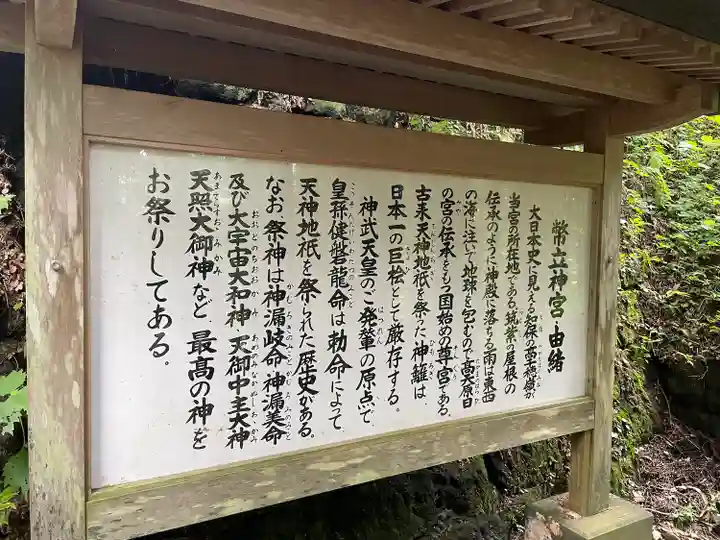 幣立神宮由緒
大日本史に見える知保の高千穂嶺が
当宮の所在地である。筑紫の屋根の
伝承のように神殿に落ちる雨は東西
の海に注いで地球を包むので高天原日
の宮の伝承をもつ国始めの尊宮である。
古来天神地祇を祭った神籬は、
日本一の巨桧として厳存する。
神武天皇のご発輦の原点で、
皇孫健磐龍命は勅命によって
天神地祇を祭られた歴史がある。
なお、祭神は神漏岐命・神漏美命
及び大宇宙大和神・天御中主大神
天照大御神など、最高の神を
お祭りしてある。